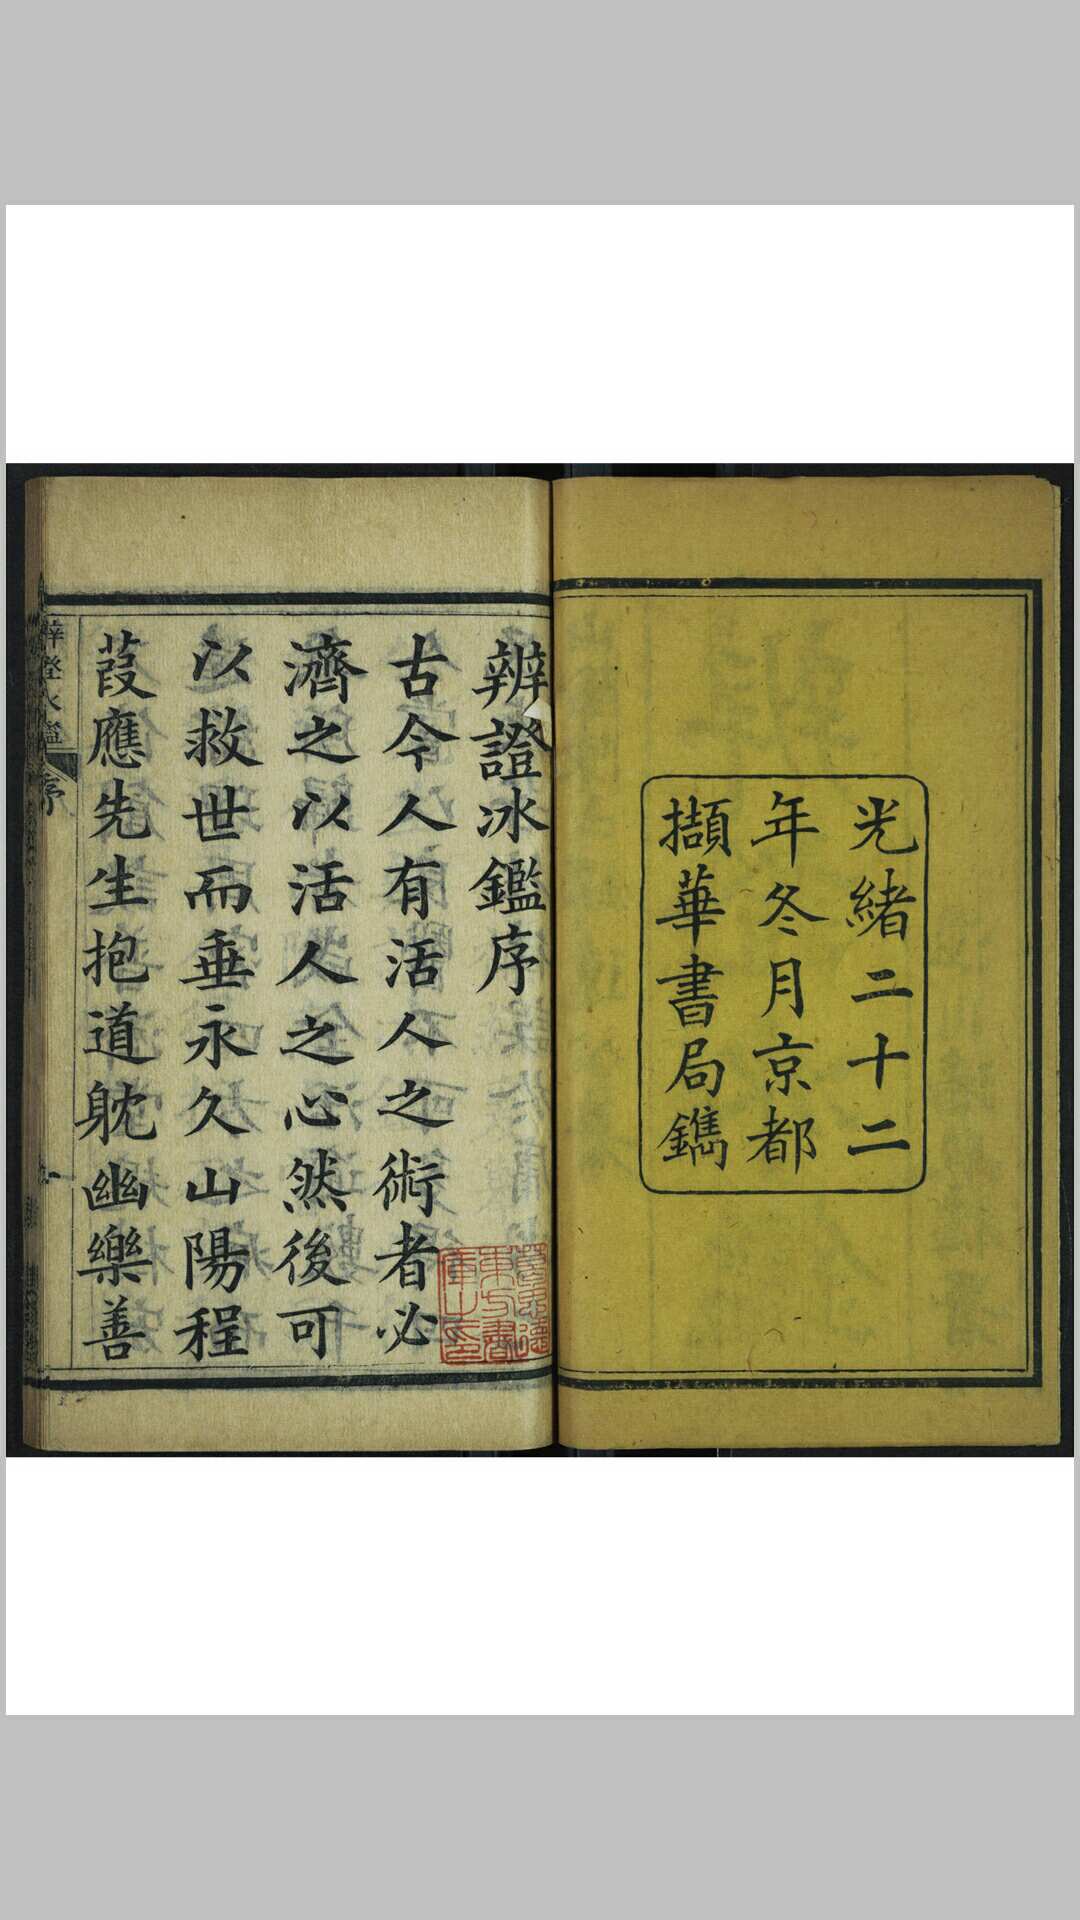 光緒二十二
年冬月京都
擷華書局鐫
辨證冰鑑序
古今人有活人之術者必
濟之以活人之心然後可
以救世而垂永久山陽程
葭應先生抱道躭幽樂善
序